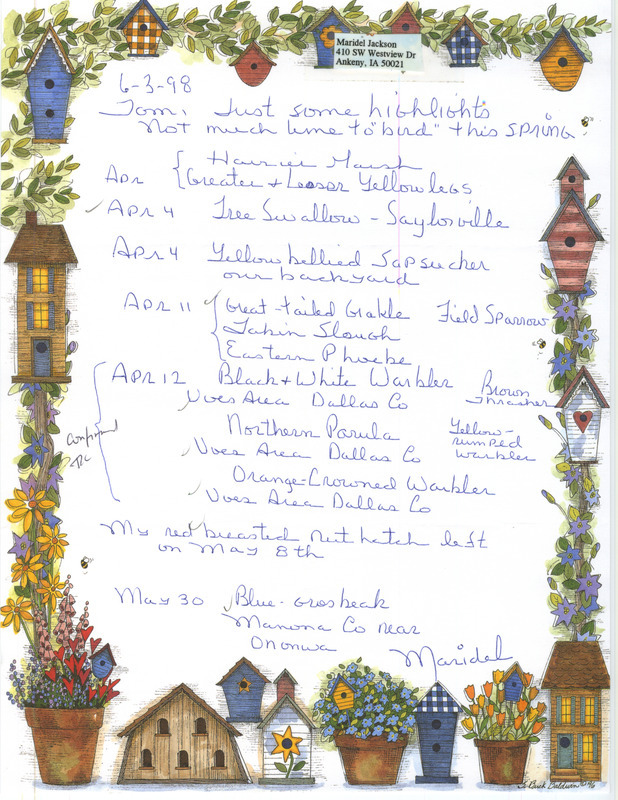 Maridel Jackson
410 SW Westview Dr
Ankeny, IA 50021
6-3-98
Tom, Just some highlights
Not much time to "bird" this SPRING
Harrier Marsh
Apr Greater + Lesser Yellowlegs
Apr 4 Tree Swallow - Saylorville
Apr 4 Yellow bellied Sapsucker
our backyard
Apr 11 Great-tailed Grakle Field Sparrow
Jakin Slough
Eastern Phoebe
Apr 12 Black + White Warbler Brown
Thrasher
Uves Area Dallas Co
Northern Parula Yellow-
rumped
warbler
Uves Area Dallas Co
Orange-Crowned Warbler
Uves Area Dallas Co
My red breasted Nut hatch left
on May 8th
May 30 Blue-Grosbeak
Manona Co near
Ononwa
Maridel